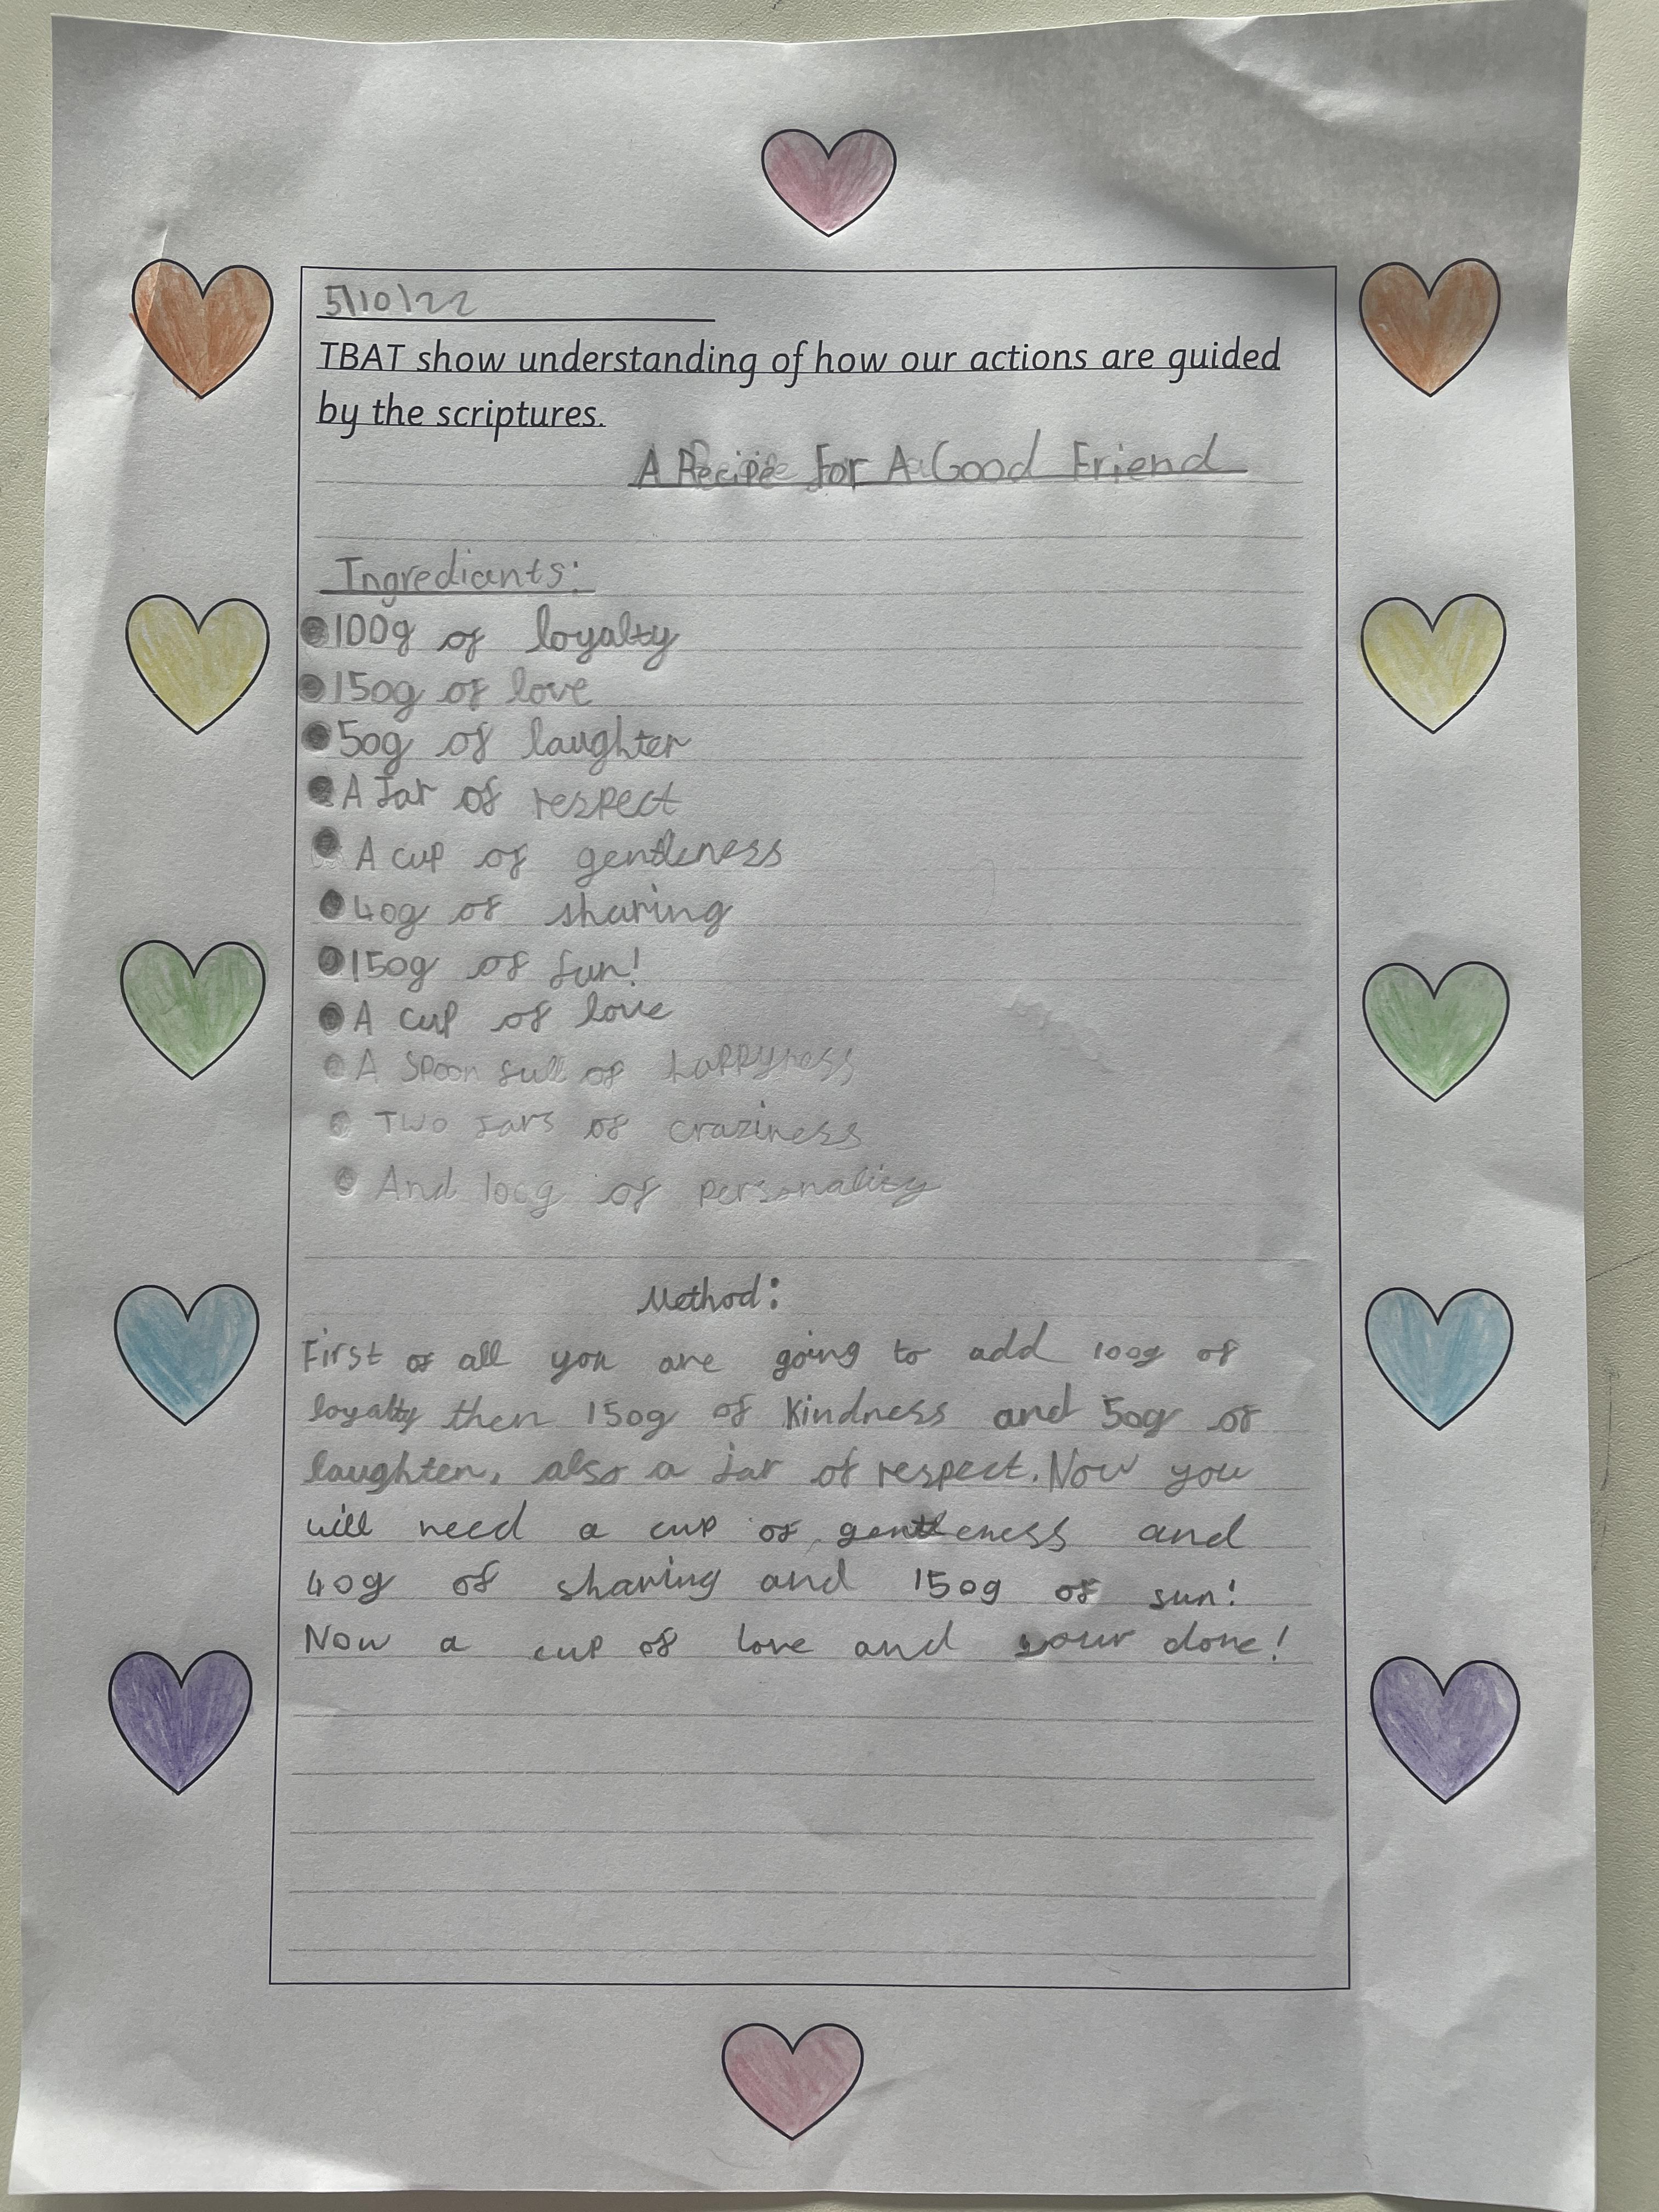 5\10\22
TBAT show understanding of how our actions are guided
by the scriptures.
A Recipie For A Good Friend
Ingrediants:
100g of loyalty
150g of love
50g of laughter
A Jar of respect
A cup of gentleness
40g of sharing
150g of fun!
A cup of love
A spoon full of happyness
Two Jars of craziness
And 100g of personality
Method:
First of all you are going to add 100g of
loyalty then 150g of Kindness and 50g of
laughter, also a jar of respect. Now you
will need a cup of gentleness and
40g of sharing and 150g of fun!
Now a cup of love and your done!